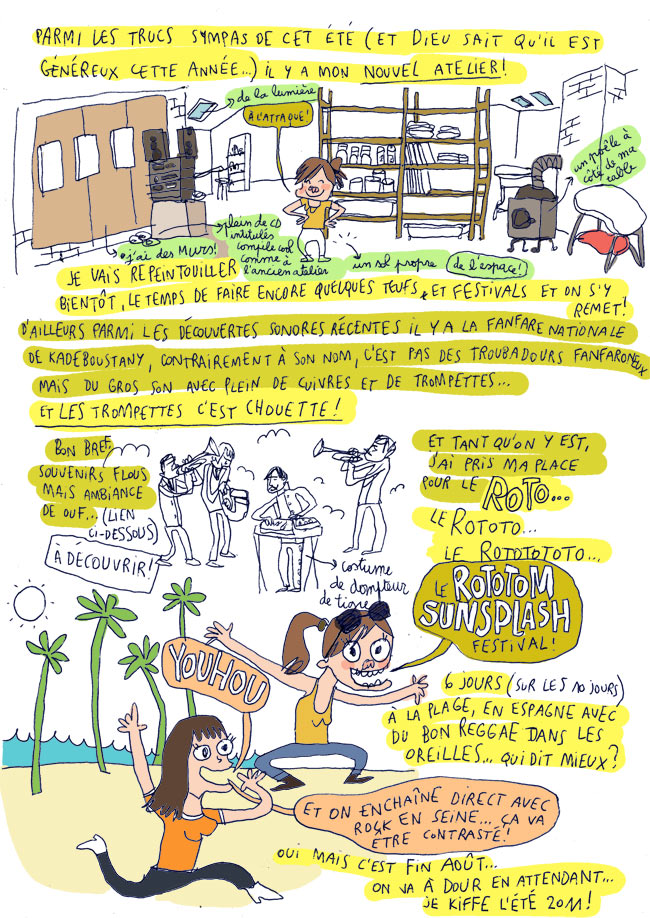 PARMI LES TRUCS SYMPAS DE CET ÉTÉ (ET DIEU SAIT QU'IL EST
GÉNÉREUX CETTE ANNÉE...) IL Y A MON NOUVEL ATELIER!
de la lumière
À L'ATTAQUE!
un poêle à
côté de ma
table
j'ai des MURS!
plein de CD
intitulés
compile cool
comme à
l'ancien atelier
un sol propre (de l'espace!)
JE VAIS REPEINTOUILLER
BIENTÔT, LE TEMPS DE FAIRE ENCORE QUELQUES TEUFS ET FESTIVALS ET ON S'Y
REMET!
D'AILLEURS PARMI LES DÉCOUVERTES SONORES RÉCENTES IL Y A LA FANFARE NATIONALE
DE KADEBOUSTANY, CONTRAIREMENT À SON NOM, C'EST PAS DES TROUBADOURS FANFARONEUX
MAIS DU GROS SON AVEC PLEIN DE CUIVRES ET DE TROMPETTES...
ET LES TROMPETTES C'EST CHOUETTE!
BON BREF,
SOUVENIRS FLOUS
MAIS AMBIANCE
DE OUF... (LIEN
CI-DESSOUS)
À DÉCOUVRIR!
costume
de dompteur
de tigre
ET TANT QU'ON Y EST,
J'AI PRIS MA PLACE
POUR LE ROTO...
LE ROTOTO...
LE ROTOTOTOTO...
LE ROTOTOM
SUNSPLASH
FESTIVAL!
YOUHOU
6 JOURS (SUR LES 10 JOURS)
À LA PLAGE, EN ESPAGNE AVEC
DU BON REGGAE DANS LES
OREILLES... QUI DIT MIEUX?
ET ON ENCHAÎNE DIRECT AVEC
ROCK EN SEINE... ÇA VA
ÊTRE CONTRASTÉ!
OUI MAIS C'EST FIN AOÛT...
ON VA À DOUR EN ATTENDANT...
JE KIFFE L'ÉTÉ 2011!